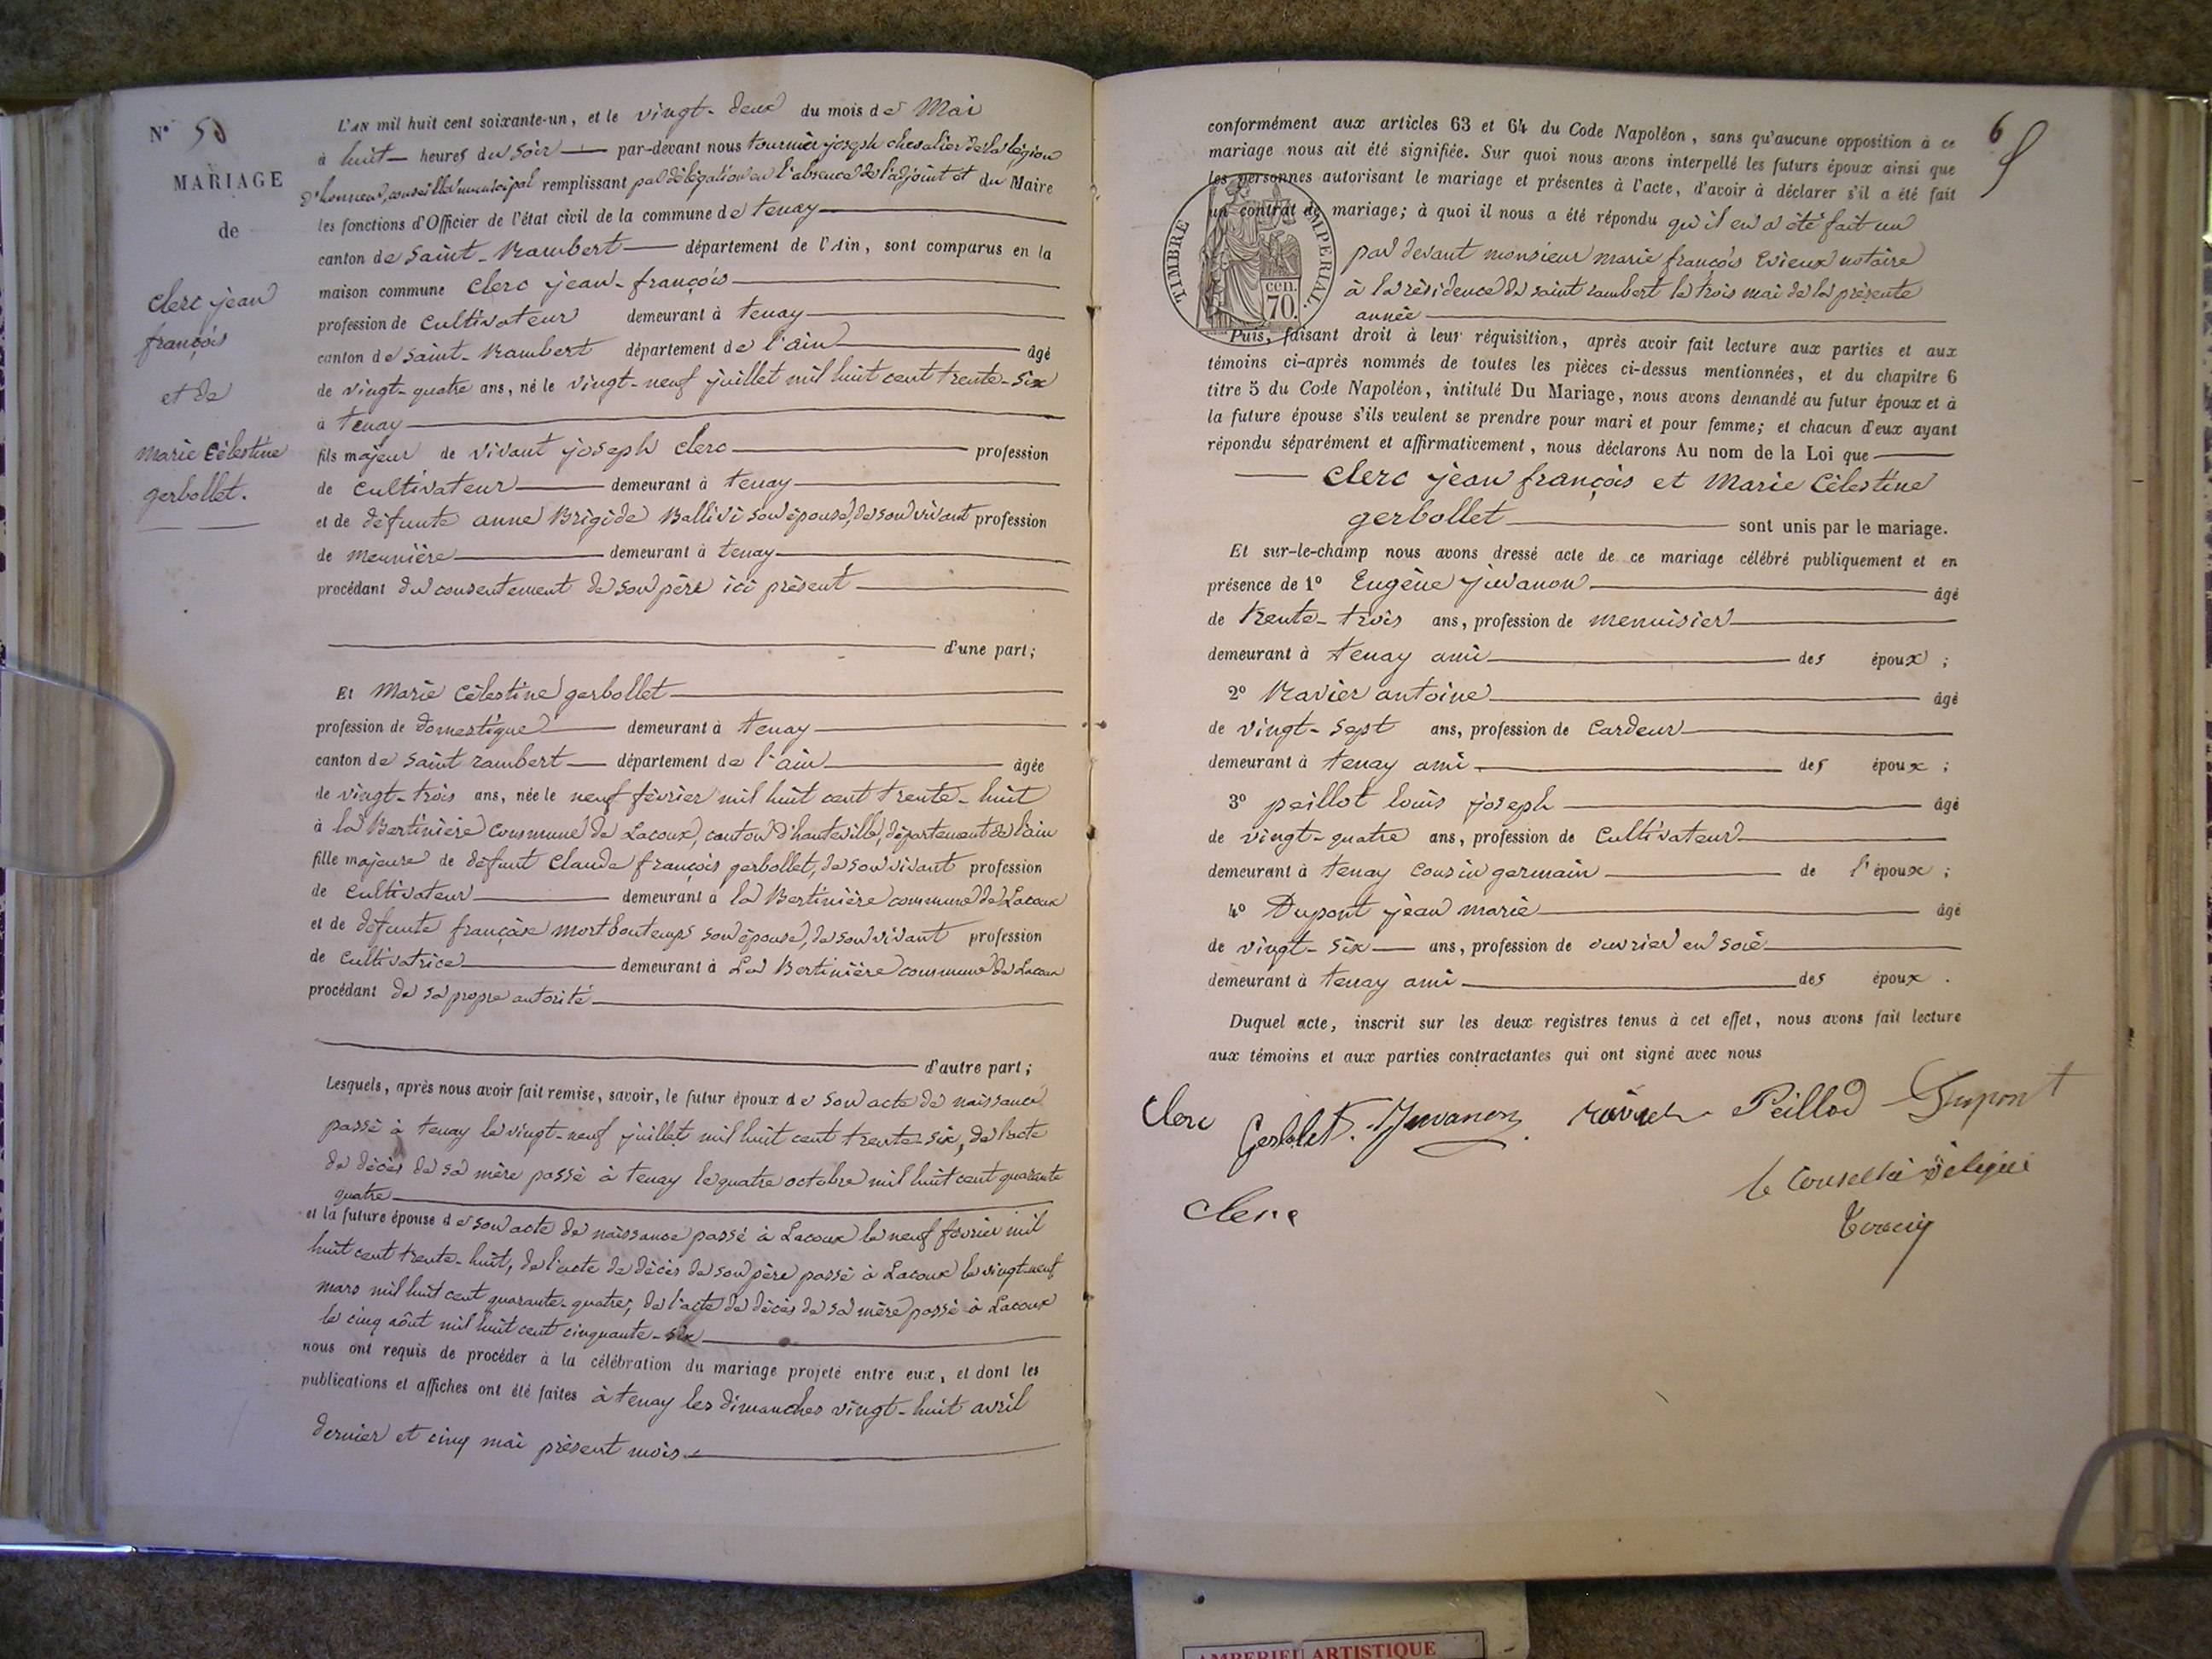 N° 50
MARIAGE
de
Clerc jean
françois
et de
Marie Célestine
gerbollet.
L'AN mil huit cent soixante-un, et le vingt-deux du mois de Mai
à huit heures du soir par-devant nous tournier joseph chevalier de la légion
d'honneur, conseiller municipal remplissant par délégation en l'absence de l'adjoint et du Maire
les fonctions d'Officier de l'état civil de la commune de tenay
canton de Saint-Rambert département de l'Ain, sont comparus en la
maison commune Clerc jean-françois
profession de Cultivateur demeurant à tenay
canton de Saint-Rambert département de l'ain âgé
de vingt-quatre ans, né le vingt-neuf juillet mil huit cent trente-six
à tenay
fils majeur de vivant joseph Clerc profession
de Cultivateur demeurant à tenay
et de défunte anne Brigide Ballivi son épouse, de son vivant profession
de meunière demeurant à tenay
procédant du consentement de son père ici présent
d'une part;
Et Marie Célestine gerbollet
profession de domestique demeurant à tenay
canton de Saint rambert département de l'ain âgée
de vingt-trois ans, née le neuf février mil huit cent trente-huit
à la Bertinière commune de Lacoux, canton d'hauteville, département de l'ain
fille majeure de défunt Claude françois gerbollet, de son vivant profession
de cultivateur demeurant à la Bertinière commune de Lacoux
et de défunte françoise mortbontemps son épouse, de son vivant profession
de Cultivatrice demeurant à La Bertinière commune de Lacoux
procédant de sa propre autorité
d'autre part;
Lesquels, après nous avoir fait remise, savoir, le futur époux de son acte de naissance
passé à tenay le vingt-neuf juillet mil huit cent trente-six, de l'acte
de décès de sa mère passé à tenay le quatre octobre mil huit cent quarante
quatre
et la future épouse de son acte de naissance passé à Lacoux le neuf février mil
huit cent trente-huit, de l'acte de décès de son père passé à Lacoux le vingt-neuf
mars mil huit cent quarante-quatre, de l'acte de décès de sa mère passé à Lacoux
le cinq août mil huit cent cinquante-six
nous ont requis de procéder à la célébration du mariage projeté entre eux, et dont les
publications et affiches ont été faites à tenay les dimanches vingt-huit avril
dernier et cinq mai présent mois
6
conformément aux articles 63 et 64 du Code Napoléon, sans qu'aucune opposition à ce
mariage nous ait été signifiée. Sur quoi nous avons interpellé les futurs époux ainsi que
les personnes autorisant le mariage et présentes à l'acte, d'avoir à déclarer s'il a été fait
un contrat de mariage; à quoi il nous a été répondu qu'il en a été fait un
TIMBRE IMPERIAL.
cen.
70.
par devant monsieur marie françois Evieux notaire
à la résidence de saint rambert le trois mai de la présente
année
Puis, faisant droit à leur réquisition, après avoir fait lecture aux parties et aux
témoins ci-après nommés de toutes les pièces ci-dessus mentionnées, et du chapitre 6
titre 5 du Code Napoléon, intitulé Du Mariage, nous avons demandé au futur époux et à
la future épouse s'ils veulent se prendre pour mari et pour femme; et chacun d'eux ayant
répondu séparément et affirmativement, nous déclarons Au nom de la Loi que
Clerc jean françois et Marie Célestine
gerbollet sont unis par le mariage.
Et sur-le-champ nous avons dressé acte de ce mariage célébré publiquement et en
présence de 1° Eugène juvanon âgé
de trente-trois ans, profession de menuisier
demeurant à tenay ami des époux ;
2° Ravier antoine âgé
de vingt-sept ans, profession de Cardeur
demeurant à tenay ami des époux ;
3° peillot louis joseph âgé
de vingt-quatre ans, profession de Cultivateur
demeurant à tenay cousin germain de l'époux ;
4° Dupont jean marie âgé
de vingt-six ans, profession de ouvrier en soie
demeurant à tenay ami des époux .
Duquel acte, inscrit sur les deux registres tenus à cet effet, nous avons fait lecture
aux témoins et aux parties contractantes qui ont signé avec nous
Clerc Gerbolet. Juvanon ravier Peillod Dupont
le Conseiller délégué
Clerc
AMBERIEU ARTISTIQUE